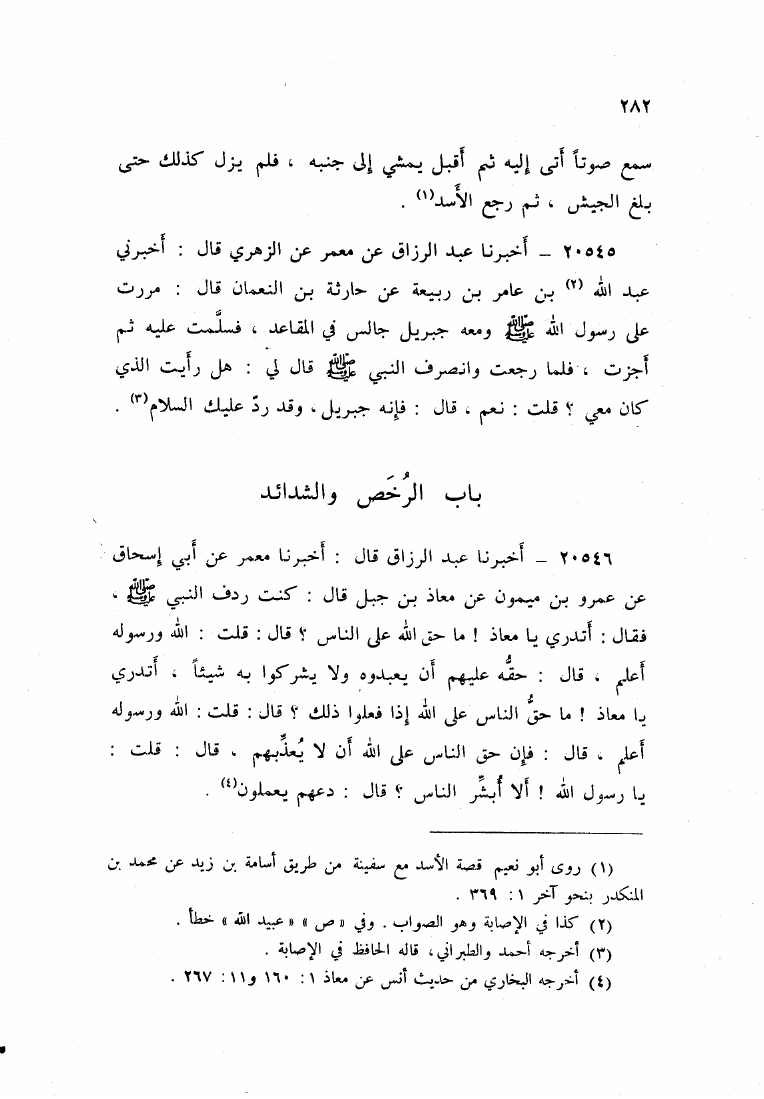 ٢٨٢
سمع صوتاً أتى إليه ثم أقبل يمشي إلى جنبه ، فلم يزل كذلك حتى
بلغ الجيش ، ثم رجع الأسد(١) .
٢٠٥٤٥ – أخبرنا عبد الرزاق عن معمر عن الزهري قال : أخبرني
عبد الله (٢) بن عامر بن ربيعة عن حارثة بن النعمان قال : مررت
على رسول الله ﷺ ومعه جبريل جالس في المقاعد ، فسلَّمت عليه ثم
أجزت ، فلما رجعت وانصرف النبي ﷺ قال لي : هل رأيت الذي
كان معي ؟ قلت : نعم ، قال : فإنه جبريل ، وقد ردّ عليك السلام(٣) .
باب الرُخَص والشدائد
٢٠٥٤٦ – أخبرنا عبد الرزاق قال : أخبرنا معمر عن أبي إسحاق
عن عمرو بن ميمون عن معاذ بن جبل قال : كنت ردف النبي ﷺ ،
فقال : أتدري يا معاذ ! ما حق الله على الناس ؟ قال : قلت : الله ورسوله
أعلم ، قال : حقُّه عليهم أن يعبدوه ولا يشركوا به شيئاً ، أتدري
يا معاذ ! ما حقُّ الناس على الله إذا فعلوا ذلك ؟ قال : قلت : الله ورسوله
أعلم ، قال : فإن حق الناس على الله أن لا يُعذِّبهم ، قال : قلت :
يا رسول الله ! ألا أُبشِّر الناس ؟ قال : دعهم يعملون(٤) .
(١) روى أبو نعيم قصة الأسد مع سفينة من طريق أسامة بن زيد عن محمد بن
المنكدر بنحو آخر ١ : ٣٦٩ .
(٢) كذا في الإصابة وهو الصواب . وفي « ص » « عبيد الله » خطأ .
(٣) أخرجه أحمد والطبراني ، قاله الحافظ في الإصابة .
(٤) أخرجه البخاري من حديث أنس عن معاذ ١ : ١٦٠ و١١ : ٢٦٧ .